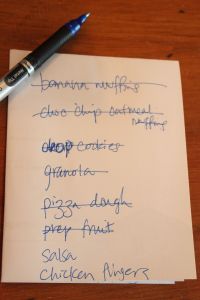 banana muffins
choc chip oatmeal
muffins
cookies
granola
pizza dough
prep fruit
salsa
chicken fingers